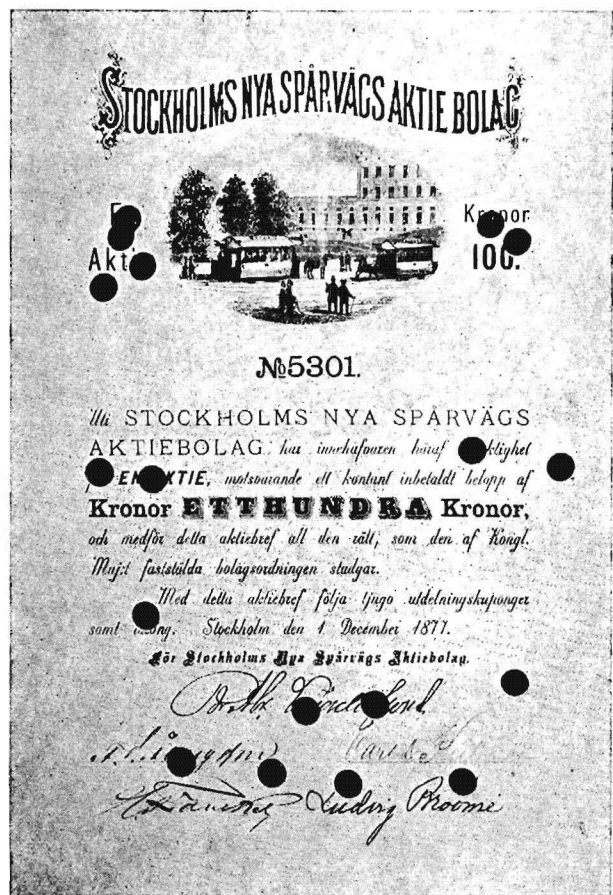 STOCKHOLMS NYA SPÅRVÄGS AKTIE BOLAG
Kronor
100.
№5301.
Uti STOCKHOLMS NYA SPÅRVÄGS
AKTIEBOLAG har innehafvaren häraf
motsvarande ett kontant inbetaldt belopp af
Kronor ETTHUNDRA Kronor,
och medför detta aktiebref all den rätt, som den af Kongl.
Maj:t fastställda bolagsordningen stadgar.
Med detta aktiebref följa tjugo utdelningskuponger
samt Stockholm den 1. December 1877.
För Stockholms Nya Spårvägs Aktiebolag.
Ludvig Broomé